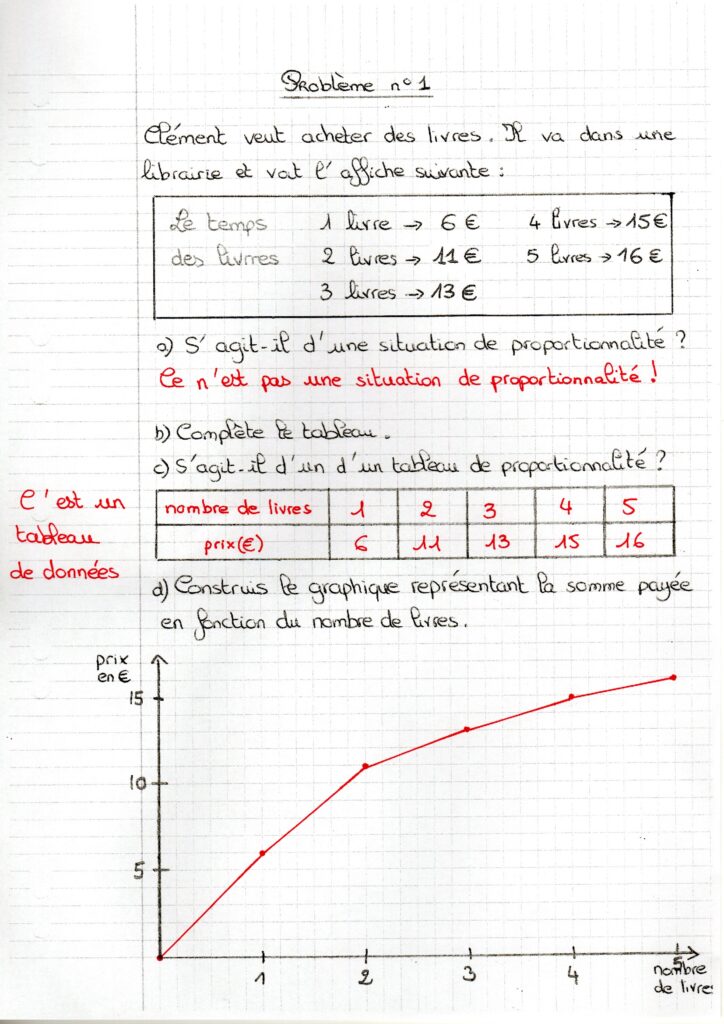 Problème n°1
Clément veut acheter des livres. Il va dans une
librairie et voit l'affiche suivante :
Le temps 1 livre → 6 € 4 livres → 15 €
des livrres 2 livres → 11 € 5 livres → 16 €
3 livres → 13 €
a) S'agit-il d'une situation de proportionnalité ?
Ce n'est pas une situation de proportionnalité !
b) Complète le tableau.
c) S'agit-il d'un d'un tableau de proportionnalité ?
C'est un
tableau
de données
nombre de livres 1 2 3 4 5
prix (€) 6 11 13 15 16
d) Construis le graphique représentant la somme payée
en fonction du nombre de livres.
prix
en €
15
10
5
1 2 3 4 5
nombre
de livres